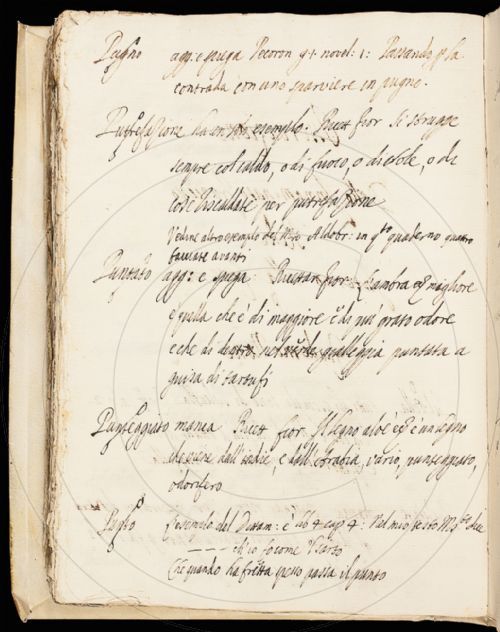 Pugno agg: e spiega Pecoron g. 1. novel: 1: Passando p la
contrada con uno sparviere in pugno.
Putrefazione ha un sol esempio. Ricett fior Si strugge
sempre col caldo, o di fuoco, o di sole, o di
cose riscaldate per putrefazione
Vedine altro esempio del Aldobr: in qto quaderno quattro
facciate avanti
Puntato agg: e spiega Ricettar fior: l'ambra migliore
è quella che è di maggiore e di piu' grato odore
e che di dentro nel galleggia puntata a
guisa di tartufi
Punteggiato manca Ricett fior Il legno aloè è un legno
che viene dall'Indie, e dall'Arabia, vario, punteggiato,
odorifero
Punto L'esempio del Dittam: è lib 4 cap 4: Nel mio testo Ms. dice
ch'io fo come
Che quando ha fretta spesso passa il punto